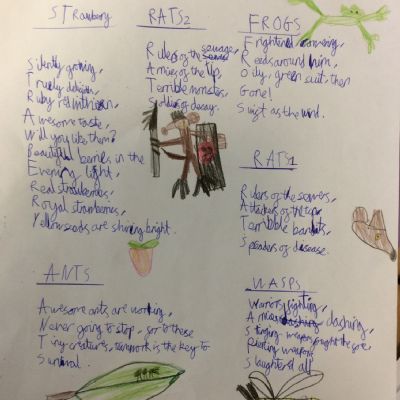 STrawberry
Silently growing,
Truely delicious,
Ruby red
Awesome taste,
Will you like them?
Beautiful berries in the
Evening light,
Real strawberries,
Royal strawberries,
Yellow seeds are shining bright.
RATS2
Rulers of the sewage,
Armies of the
Terrible monsters,
Soldiers of decay.
FROGS
Frightened, cowering,
Reeds around him,
Oily, green suit, then
Gone!
Swift as the wind.
RATS1
Rulers of the sewers,
Attackers of the
Terrible bandits,
Spreaders of disease.
ANTS
Awesome ants are working,
Never going to stop, for to these
Tiny creatures, teamwork is the key to
Survival.
WASPS
Warriors fighting,
dashing,
Stinging weapons
Piercing weapons
Slaughter all